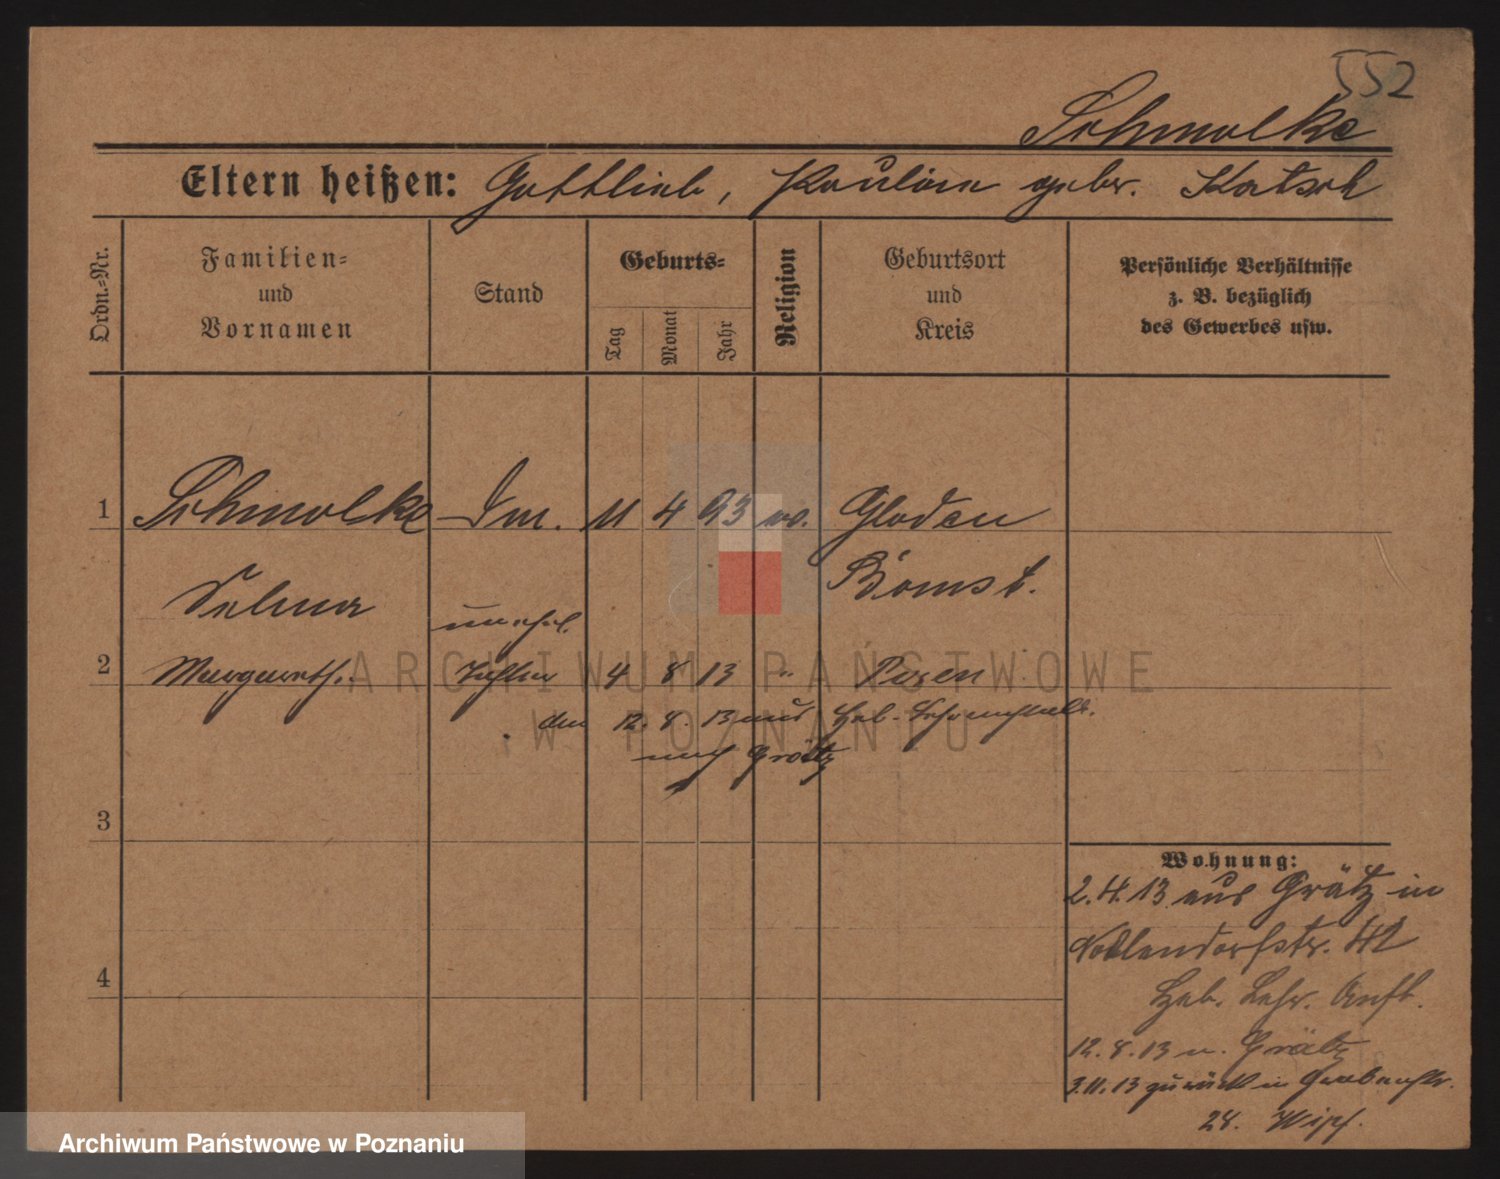 552
Schmolke
Eltern heißen: Gottlieb, Pauline gebr. Katsch
Ordn.-Nr.
Familien-
und
Vornamen
Stand
Geburts-
Tag
Monat
Jahr
Religion
Geburtsort
und
Kreis
Persönliche Verhältnisse
z. B. bezüglich
des Gewerbes usw.
1 Schmolke 11 4 93 Gloden
Selma Bomst.
unehel.
2 Margareth. Tochter 4 8 13 " Posen
den 12. 8. 13 aus Heb. Lehranstalt.
nach Grätz
3
4
Wohnung:
2.4.13 aus Grätz in
Nollendorfstr. 42
Heb. Lehr. Anst.
12.8.13 n. Grätz
3.11.13 zurück in Grabenstr.
28.
ARCHIWUM PAŃSTWOWE
W POZNANIU
Archiwum Państwowe w Poznaniu